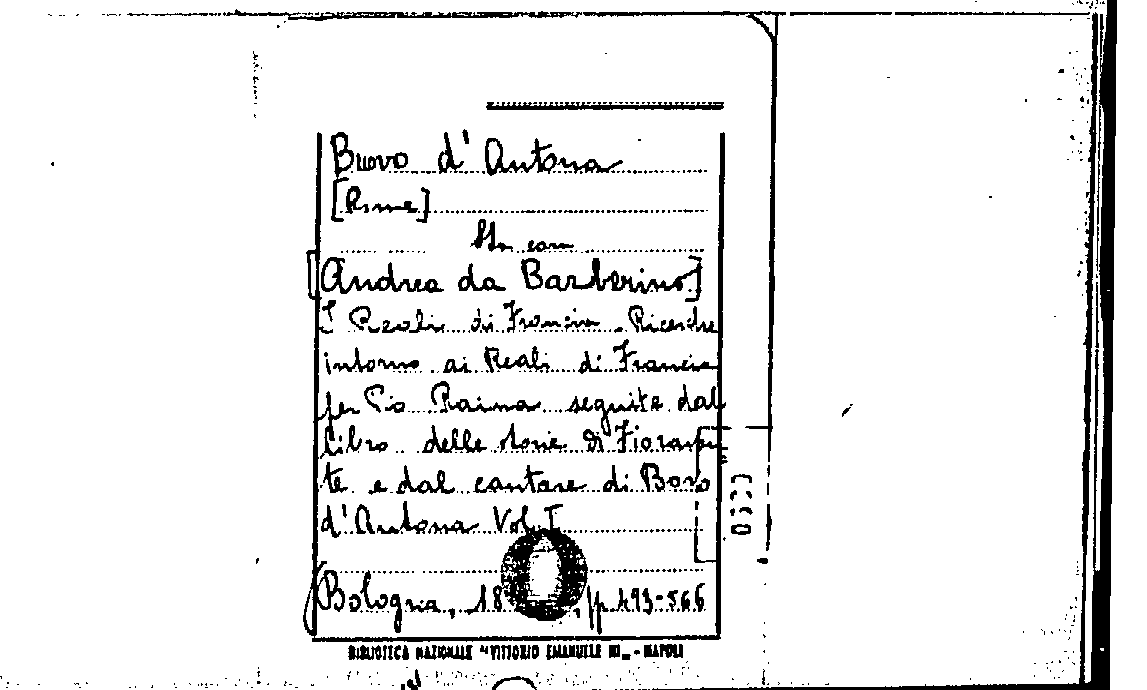 Buovo d'Antona
[Rime]
In com
[Andrea da Barberino]
I Reali di Francia. Ricerche
intorno ai Reali di Francia
per Pio Raina seguite dal
libro delle storie di Fioravan
te e dal cantare di Bovo
d'Antona Vol. I
Bologna, 18 , pp 493-566
BIBLIOTECA NAZIONALE "VITTORIO EMANUELE III" - NAPOLI